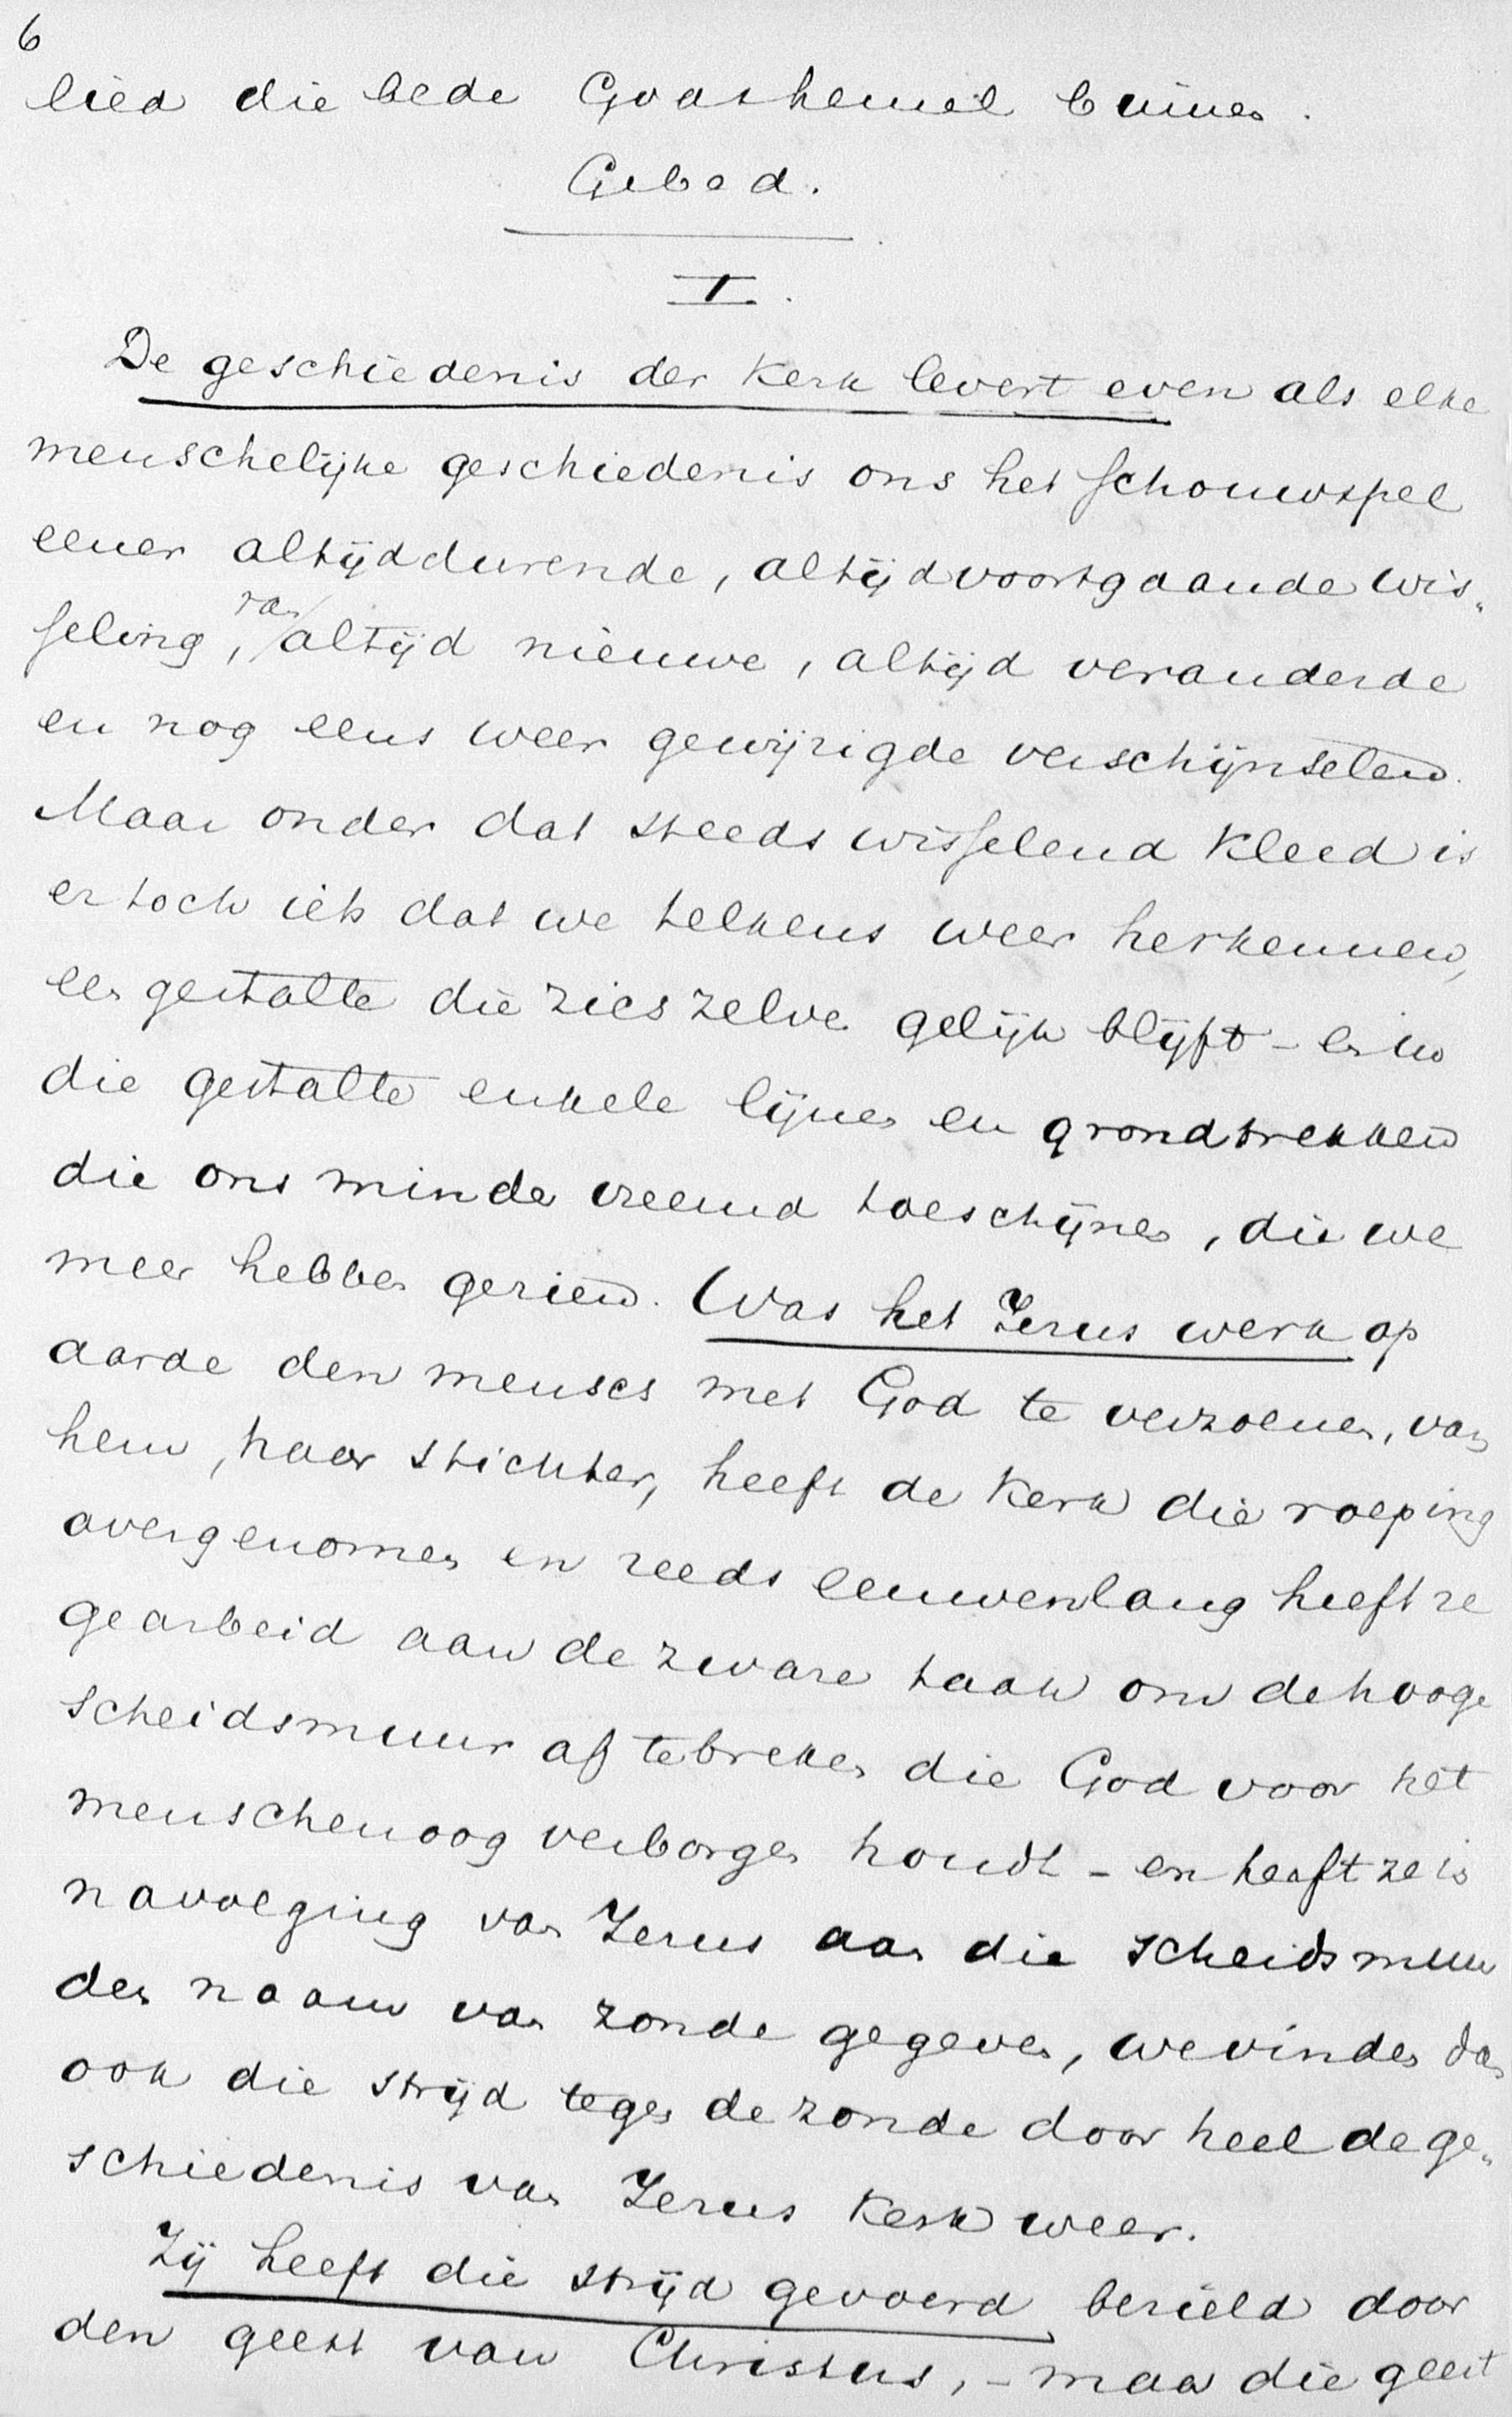 6
lied die bede Gods hemel binnen.
Gebed.
I.
De geschiedenis der Kerk levert even als elke
menschelijke geschiedenis ons het schouwspel
eener altijddurende, altijdvoortgaande wis„
seling, van altijd nieuwe, altijd veranderde
en nog eens weer gewijzigde verschijnselen.
Maar onder dat steeds wisselend Kleed is
er toch iets dat we telkens weer herkennen,
een gestalte die zich zelve gelijk blijft - en in
die gestalte enkele lijnen en grondtrekken
die ons minder vreemd toeschijnen, die we
meer hebben gezien. Was het Jezus werk op
aarde den mensch met God te verzoenen, van
hem, haar stichter, heeft de Kerk die roeping
overgenomen en reeds eeuwenlang heeft ze
gearbeid aan de zware taak om de hooge
scheidsmuur af te breken die God voor het
menschenoog verborgen houdt - en heeft ze in
navolging van Jezus aan die scheidsmuur
den naam van zonde gegeven, we vinden dan
ook die strijd tegen de zonde door heel de ge„
schiedenis van Jezus Kerk weer.
Zij heeft die strijd gevoerd bezield door
den geest van Christus, - maar die geest